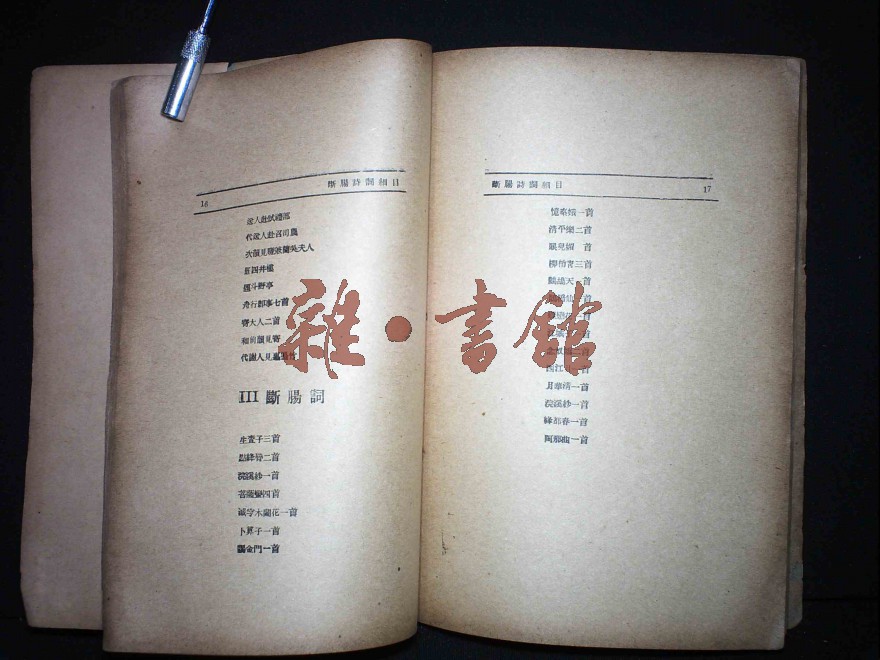 16
斷腸詩詞細目
送人赴試禮部
代送人赴召司農
次韻見贈兼簡吳夫人
題四井樓
題斗野亭
舟行即事七首
寄大人二首
和前韻見寄
代謝人見惠
III 斷腸詞
生査子三首
點絳唇二首
浣溪紗一首
菩薩蠻四首
減字木蘭花一首
卜算子一首
謁金門一首
斷腸詩詞細目
17
憶秦娥一首
清平樂二首
眼兒媚 首
柳梢青三首
鷓鴣天一首
月華清一首
浣溪紗一首
絳都春一首
阿那曲一首
雜·書館